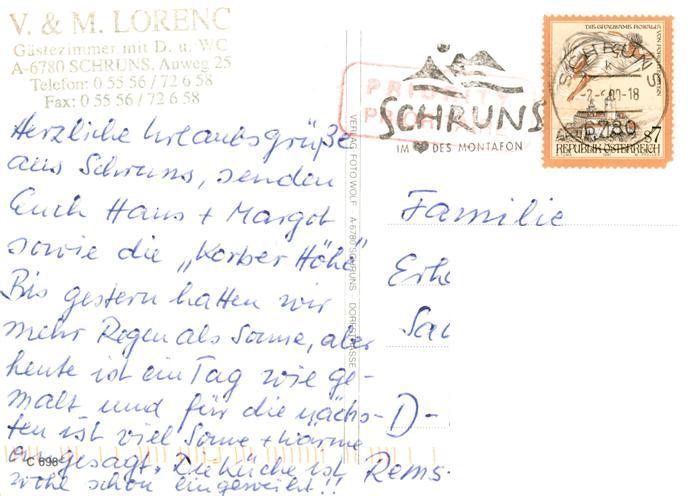 V. & M. LORENC
Gästezimmer mit D. u. WC
A-6780 SCHRUNS, Auweg 25
Telefon: 0 55 56 / 72 6 58
Fax: 0 55 56 / 72 6 58
Herzliche Urlaubsgrüße
aus Schruns, senden
Euch Hans + Margot
sowie die „Korber Höhe“
Bis gestern hatten wir
mehr Regen als Sonne, aber
heute ist ein Tag wie ge-
malt und für die nächs-
ten ist viel Sonne + Wärme
angesagt. Die Küche ist
schon eingeweiht!!
C 698
VERLAG FOTO WOLF A-6780 SCHRUNS - DORFSTRASSE
PRIORITY
SCHRUNS
IM DES MONTAFON
SCHRUNS
-18
6780
DIE GRAUSAME ROSALIA
VON FORCHTENSTEIN
S7
REPUBLIK ÖSTERREICH
Familie
Erhe
Sau
D-
Rems